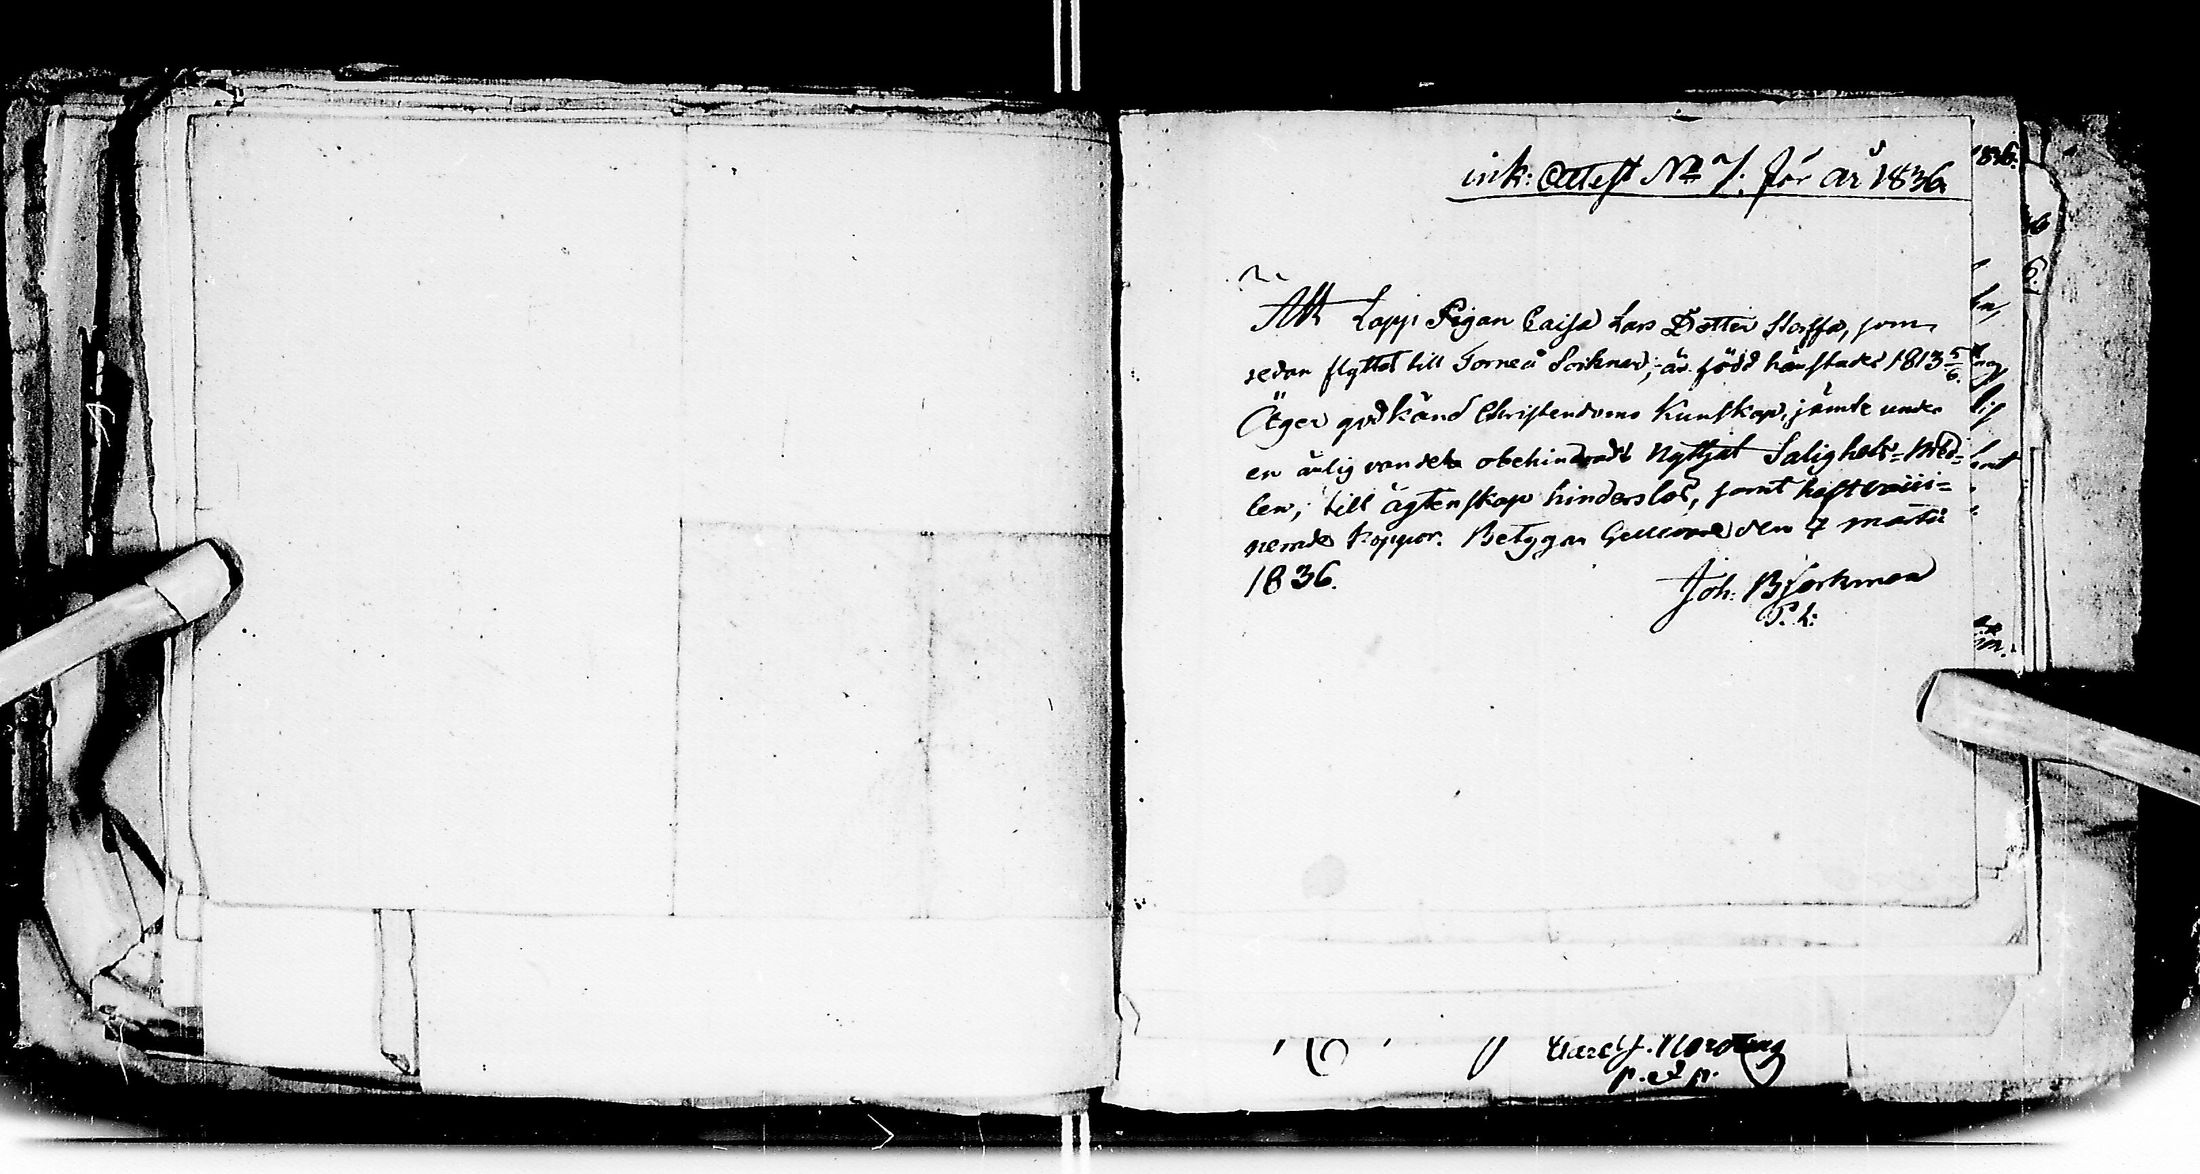 ink: Attest No 7. för år 1836.
Att Lapp Pigan Caisa Lars Dotter Stoffa, som
sedan flyttat till Torneå Socknar, är född härstädes 1813 5/6.
Äger godkänd Christendoms Kunskap, jämte under
en ärlig vandel obehindradt Nyttjat Salighets-Med-
len, till ägtenskap hinderslös, samt haft vacci-
nerade koppor. Betygar Gellivare den 7 Martii
1836.
Joh. Björkman
P. L:
Nordberg